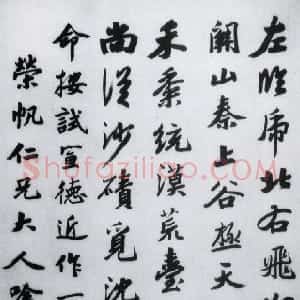 左 臨 虎 北 右 飛
關 山 秦 上 谷 極 天
禾 黍 統 漠 荒 臺
尚 從 沙 磧 覓 沈
命 按 試 宣 德 近 作 一
榮 帆 仁 兄 大 人
Shufaziliao.com